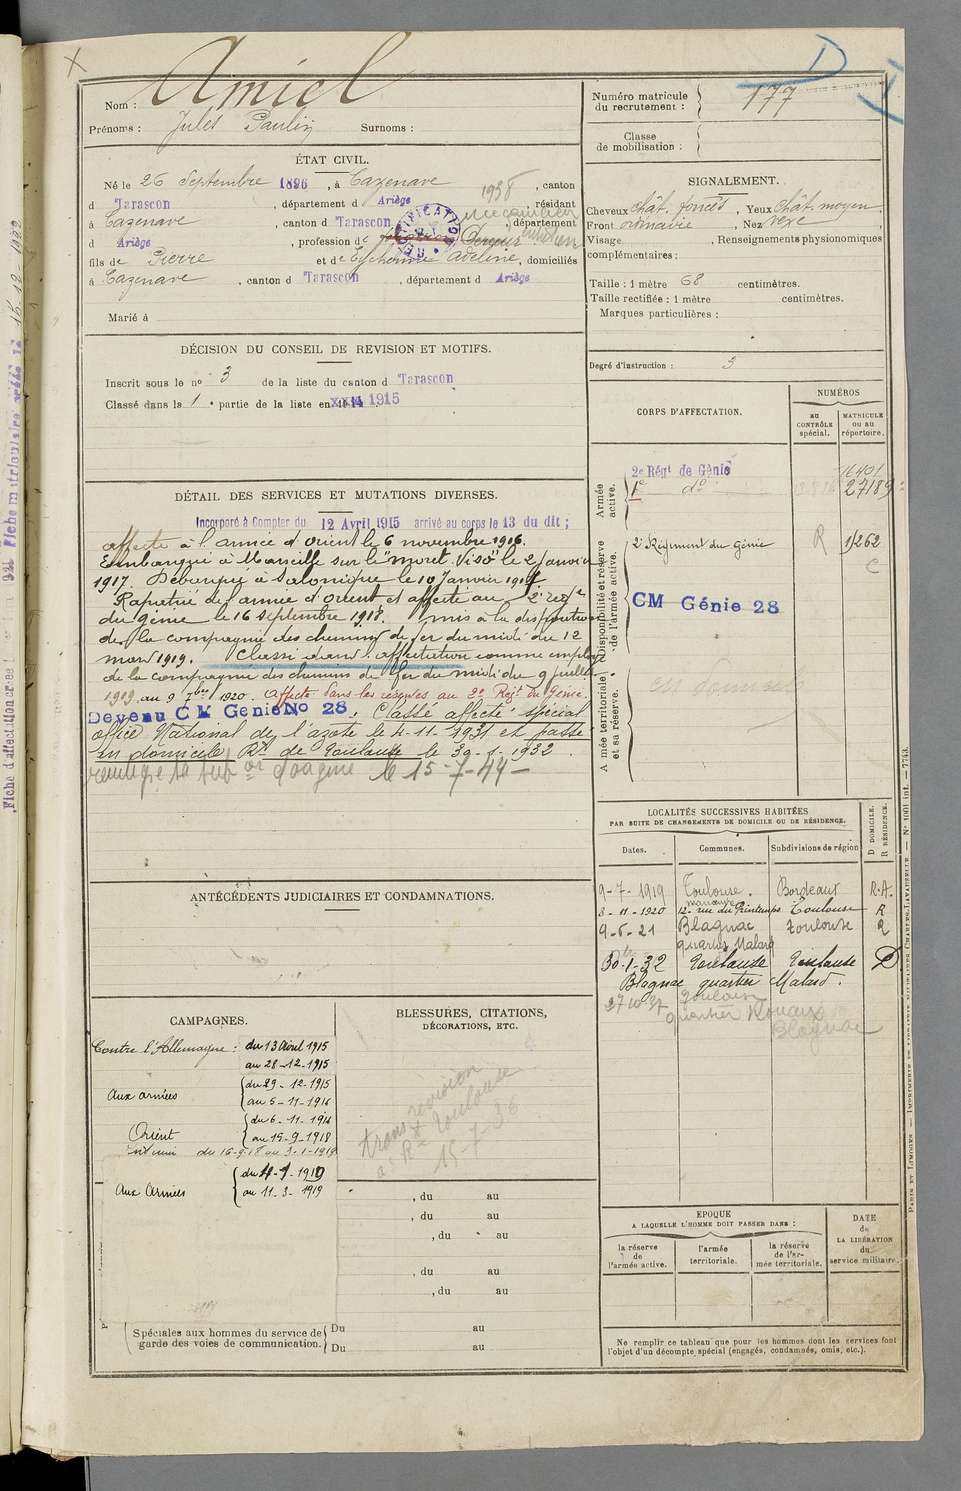 Nom : Amiel
Prénoms : Jules Paulin Surnoms :
ÉTAT CIVIL.
Né le 26 Septembre 1896, à Cazenave, canton
d Tarascon, département d Ariège, résidant
à Cazenave, canton d Tarascon, département
d Ariège, profession de
fils de Pierre et de Adeline, domiciliés
à Cazenave, canton d Tarascon, département d Ariège
Marié à
1938
mécanicien
DÉCISION DU CONSEIL DE REVISION ET MOTIFS.
Inscrit sous le no 3 de la liste du canton d Tarascon
Classé dans la 1e partie de la liste en 1915
DÉTAIL DES SERVICES ET MUTATIONS DIVERSES.
Incorporé à Compter du 12 Avril 1915 arrivé au corps le 13 du dit ;
affecté à l'armée d'Orient le 6 novembre 1916.
Embarqué à Marseille sur le "mont Viso" le 2 Janvier
1917. Débarqué à Salonique le 10 Janvier 1917
Rapatrié de l'armée d'Orient et affecté au 2e régt
du génie le 16 septembre 1918. mis à la disposition
de la compagnie des chemins de fer du midi du 12
mars 1919. Classé dans l'affectation comme employé
de la compagnie des chemins de fer du midi du 9 juillet
1919 au 9 7bre 1920. Affecté dans les réserves au 2e Régt du Génie.
Devenu CM Génie No 28. Classé affecté spécial
office National de l'azote le 4-11-1931 et passé
en domicile Rt de Toulouse le 30-1-1932
le 15-7-44
ANTÉCÉDENTS JUDICIAIRES ET CONDAMNATIONS.
CAMPAGNES.
Contre l'Allemagne : du 13 Avril 1915
au 28-12-1915
Aux armées du 29-12-1915
au 5-11-1916
Orient du 6-11-1916
au 15-9-1918
Intérieur du 16-9-18 au 3-1-1919
Aux Armées du 4-1-1919
au 11-3-1919
Spéciales aux hommes du service de garde des voies de communication. Du au
Du au
BLESSURES, CITATIONS,
DÉCORATIONS, ETC.
trans revision
à Rt Toulouse
15-7-36
, du au
, du au
, du au
, du au
, du au
Numéro matricule
du recrutement : 177
Classe
de mobilisation :
SIGNALEMENT.
Cheveux chât. foncés, Yeux chât. moyen,
Front ordinaire, Nez vexe
Visage , Renseignements physionomiques
complémentaires :
Taille : 1 mètre 68 centimètres.
Taille rectifiée : 1 mètre centimètres.
Marques particulières :
Degré d'instruction : 3
CORPS D'AFFECTATION.
NUMÉROS
au
CONTRÔLE
spécial.
MATRICULE
ou au
répertoire.
Armée
active.
2e Régt de Génie 16401
1e do 27189
Disponibilité et réserve
de l'armée active.
2e Régiment du Génie R 1262
C
CM Génie 28
Armée territoriale
et sa réserve.
LOCALITÉS SUCCESSIVES HABITÉES
PAR SUITE DE CHANGEMENTS DE DOMICILE OU DE RÉSIDENCE.
Dates. Communes. Subdivisions de région
D DOMICILE.
R RÉSIDENCE.
9-7-1919 Toulouse. Bordeaux R.A.
8-11-1920 12 rue du Printemps Toulouse R
9-6-21 Blagnac Toulouse R
quartier Malard
30-1-32 Toulouse Toulouse D
Blagnac quartier Malard.
27 10 37 Toulouse
quartier
Blagnac
ÉPOQUE
A LAQUELLE L'HOMME DOIT PASSER DANS :
la réserve
de
l'armée active.
l'armée
territoriale.
la réserve
de l'armée territoriale.
DATE
de
LA LIBÉRATION
du
service militaire.
Ne remplir ce tableau que pour les hommes dont les services font
l'objet d'un décompte spécial (engagés, condamnés, omis, etc.).
PARIS ET LIMOGES. — IMPRIMERIE ET LIBRAIRIE MILITAIRES CHARLES-LAVAUZELLE. — No 1001 int. — 7743.